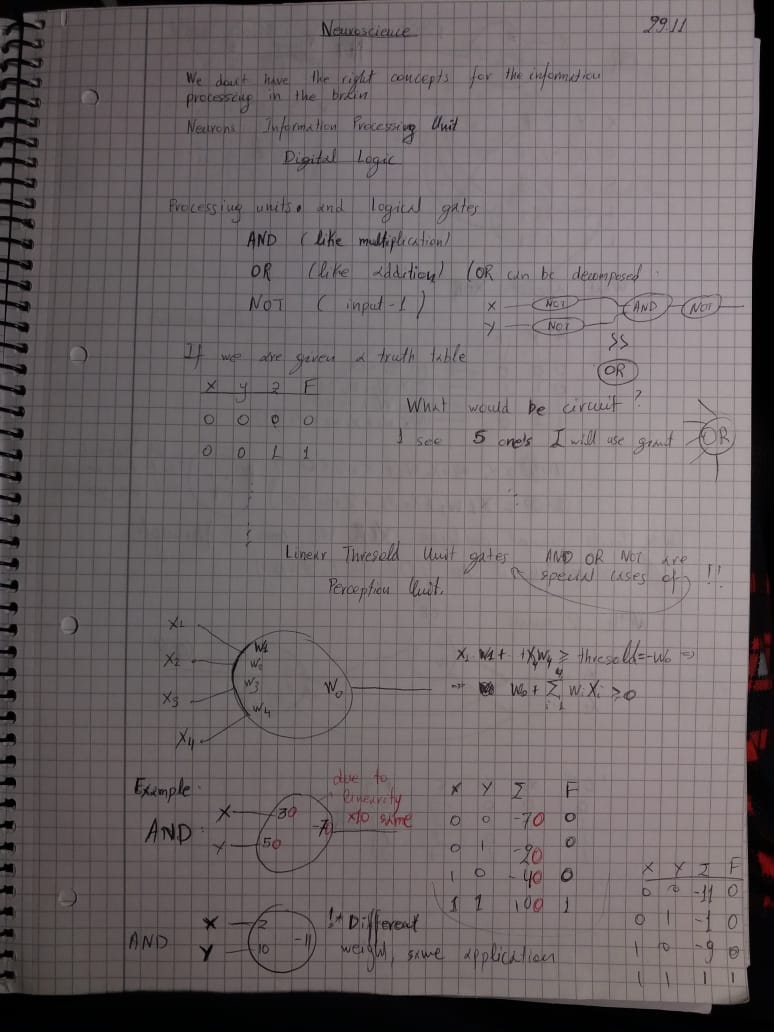 Neuroscience 29.11
We don't have the right concepts for the information
processing in the brain
Neurons Information Processing Unit
Digital Logic
Processing units and logical gates
AND (like multiplication)
OR (like addition) (OR can be decomposed
NOT (input-1)
X NOT AND NOT
Y NOT
OR
If we are given a truth table
X Y Z F
0 0 0 0
0 0 1 1
What would be circuit?
I see 5 one's I will use giant OR
Linear Thresold Unit gates AND OR NOT are
special cases of !!
Perception Unit.
X1
X2
X3
X4
W1
W3
W4
W0
X1 W1 + +X4W4 ≥ thresold=-W0 ⇒
→ W0 + 4 Σ i=1 WiXi ≥0
Example:
AND:
X 30
Y 50
-70
due to
linearity
x10 same
X Y Σ F
0 0 -70 0
0 1 -20 0
1 0 -40 0
1 1 100 1
AND
X 2
Y 10
-11
!* Different
weight, same application
X Y Σ F
0 0 -11 0
0 1 -1 0
1 0 -9 0
1 1 1 1